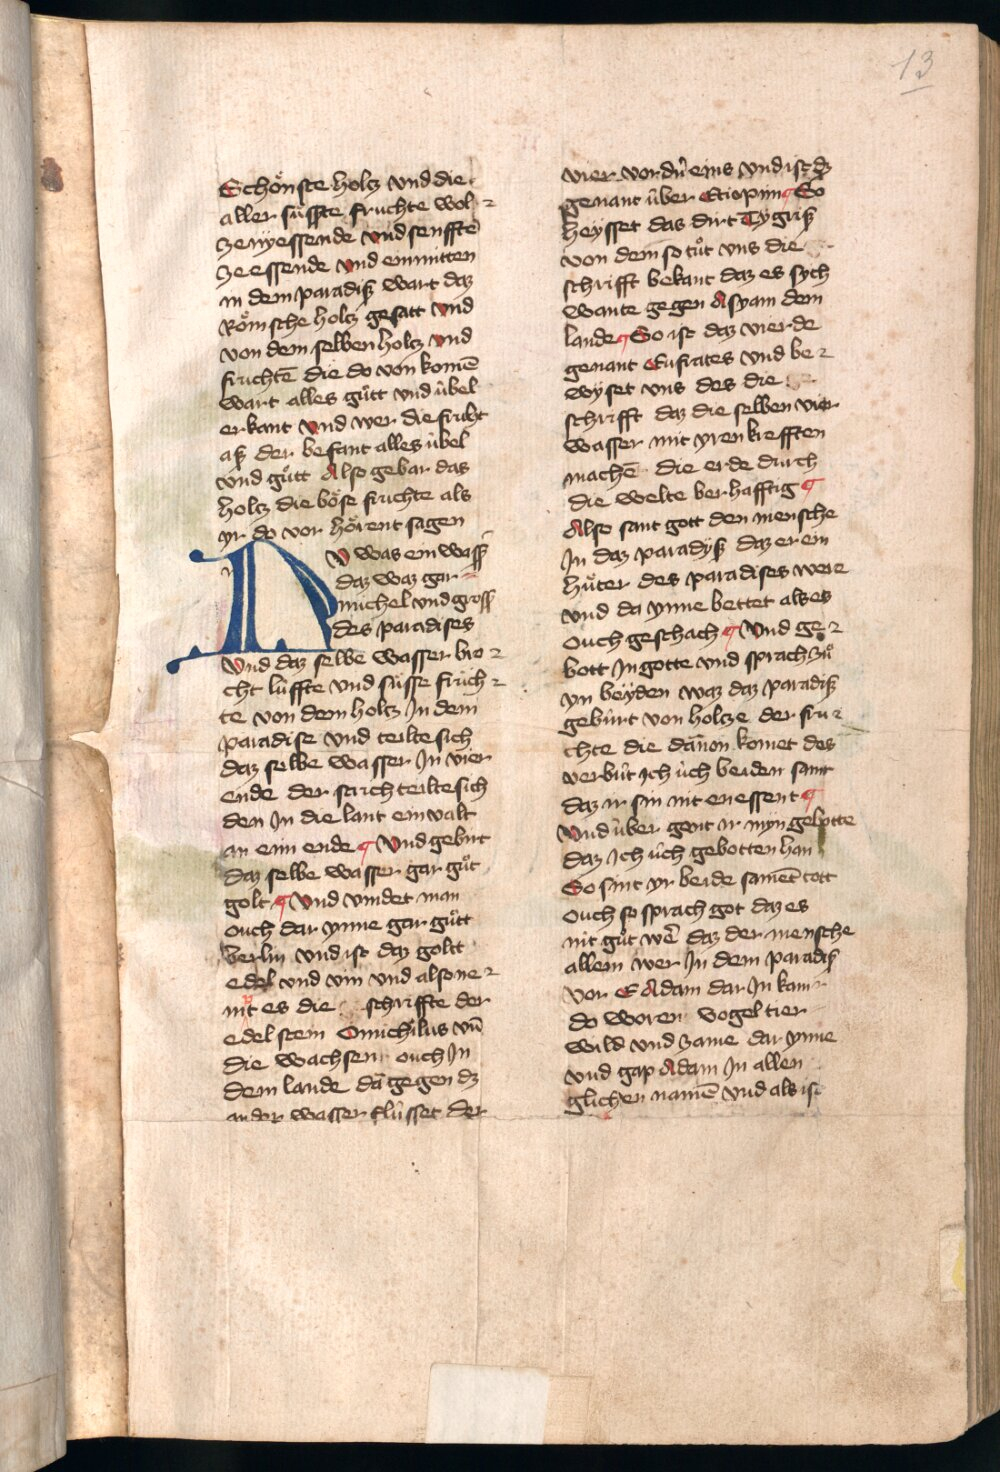 13
Schoͤnste holcz vnd die
aller suͤsste fruchte wol
ze nÿessende vnd senffte
ze essende vnd en mitten
in dem paradiß wart daz
Roͤmsche holcz gesatt vnd
von dem selben holcz vnd
fruchtē die do von komē
wart alles guͤtt vnd úbel
erkant vnd wer die frucht
aß der befant alles úbel
vnd guͤtt Also gebar das
holcz die boͤse fruchte als
yr do vor hoͤrent sagen
NV was ein wasß
daz waz gar
michel vnd gross
des paradises
Vnd daz selbe wasser bro
cht lúffte vnd sússe früch
te von dem holcz In dem
paradise vnd teilte sich
daz selbe wasser In vier
ende der satch teilte sich
den In die lant ein valt
an eim ende ¶ Vnd gebirt
daz selbe wasser gar guͤt
golt ¶ Vnd vindet man
ouch dar ynne gar guͤtt
berlin vnd ist daz goltt
edel vnd vin vnd also ne
nt es die schriffte der
edel stein Onichilus vn̄
die wachsen ouch In
dem lande da gegen dz
ander wasser flússet der
vier vor dú eins vnd ist dz
genant úber Etiopiim ¶ So
heysset das dirt Tygriß
von dem so tuͤt vns die
schrifft bekant daz es sych
wante gegen Asyam dem
lande ¶ So ist daz vierde
genant Eufrates vnd be
wyset vns des die
schrifft daz die selben vier
wasser mit yren krefften
machē die erde durch
die welte berhafftig ¶
Also sant gott den mensche
In daz paradyß daz er ein
huͤter des paradises were
vnd da ynne bettet als es
ouch geschach ¶ Vnd ge
bott In gotte vnd sprach zuͦ
yn beÿden waz daz paradiß
gebúrt von holcze der fru
chte die dānon komet des
verbút ich úch beiden sant
daz ir sin nit enessent ¶
Vnd úber gent ir myn gebotte
daz Ich úch gebotten han
So sint yr beide samēt tott
ouch so sprach got daz es
nit guͤt wē daz der mensche
allein wer In dem paradiß
vor E Adam dar In kam
do woren vogel tier
wild vnd zame dar ynne
vnd gap Adam In allen
glichen namē vnd als ist